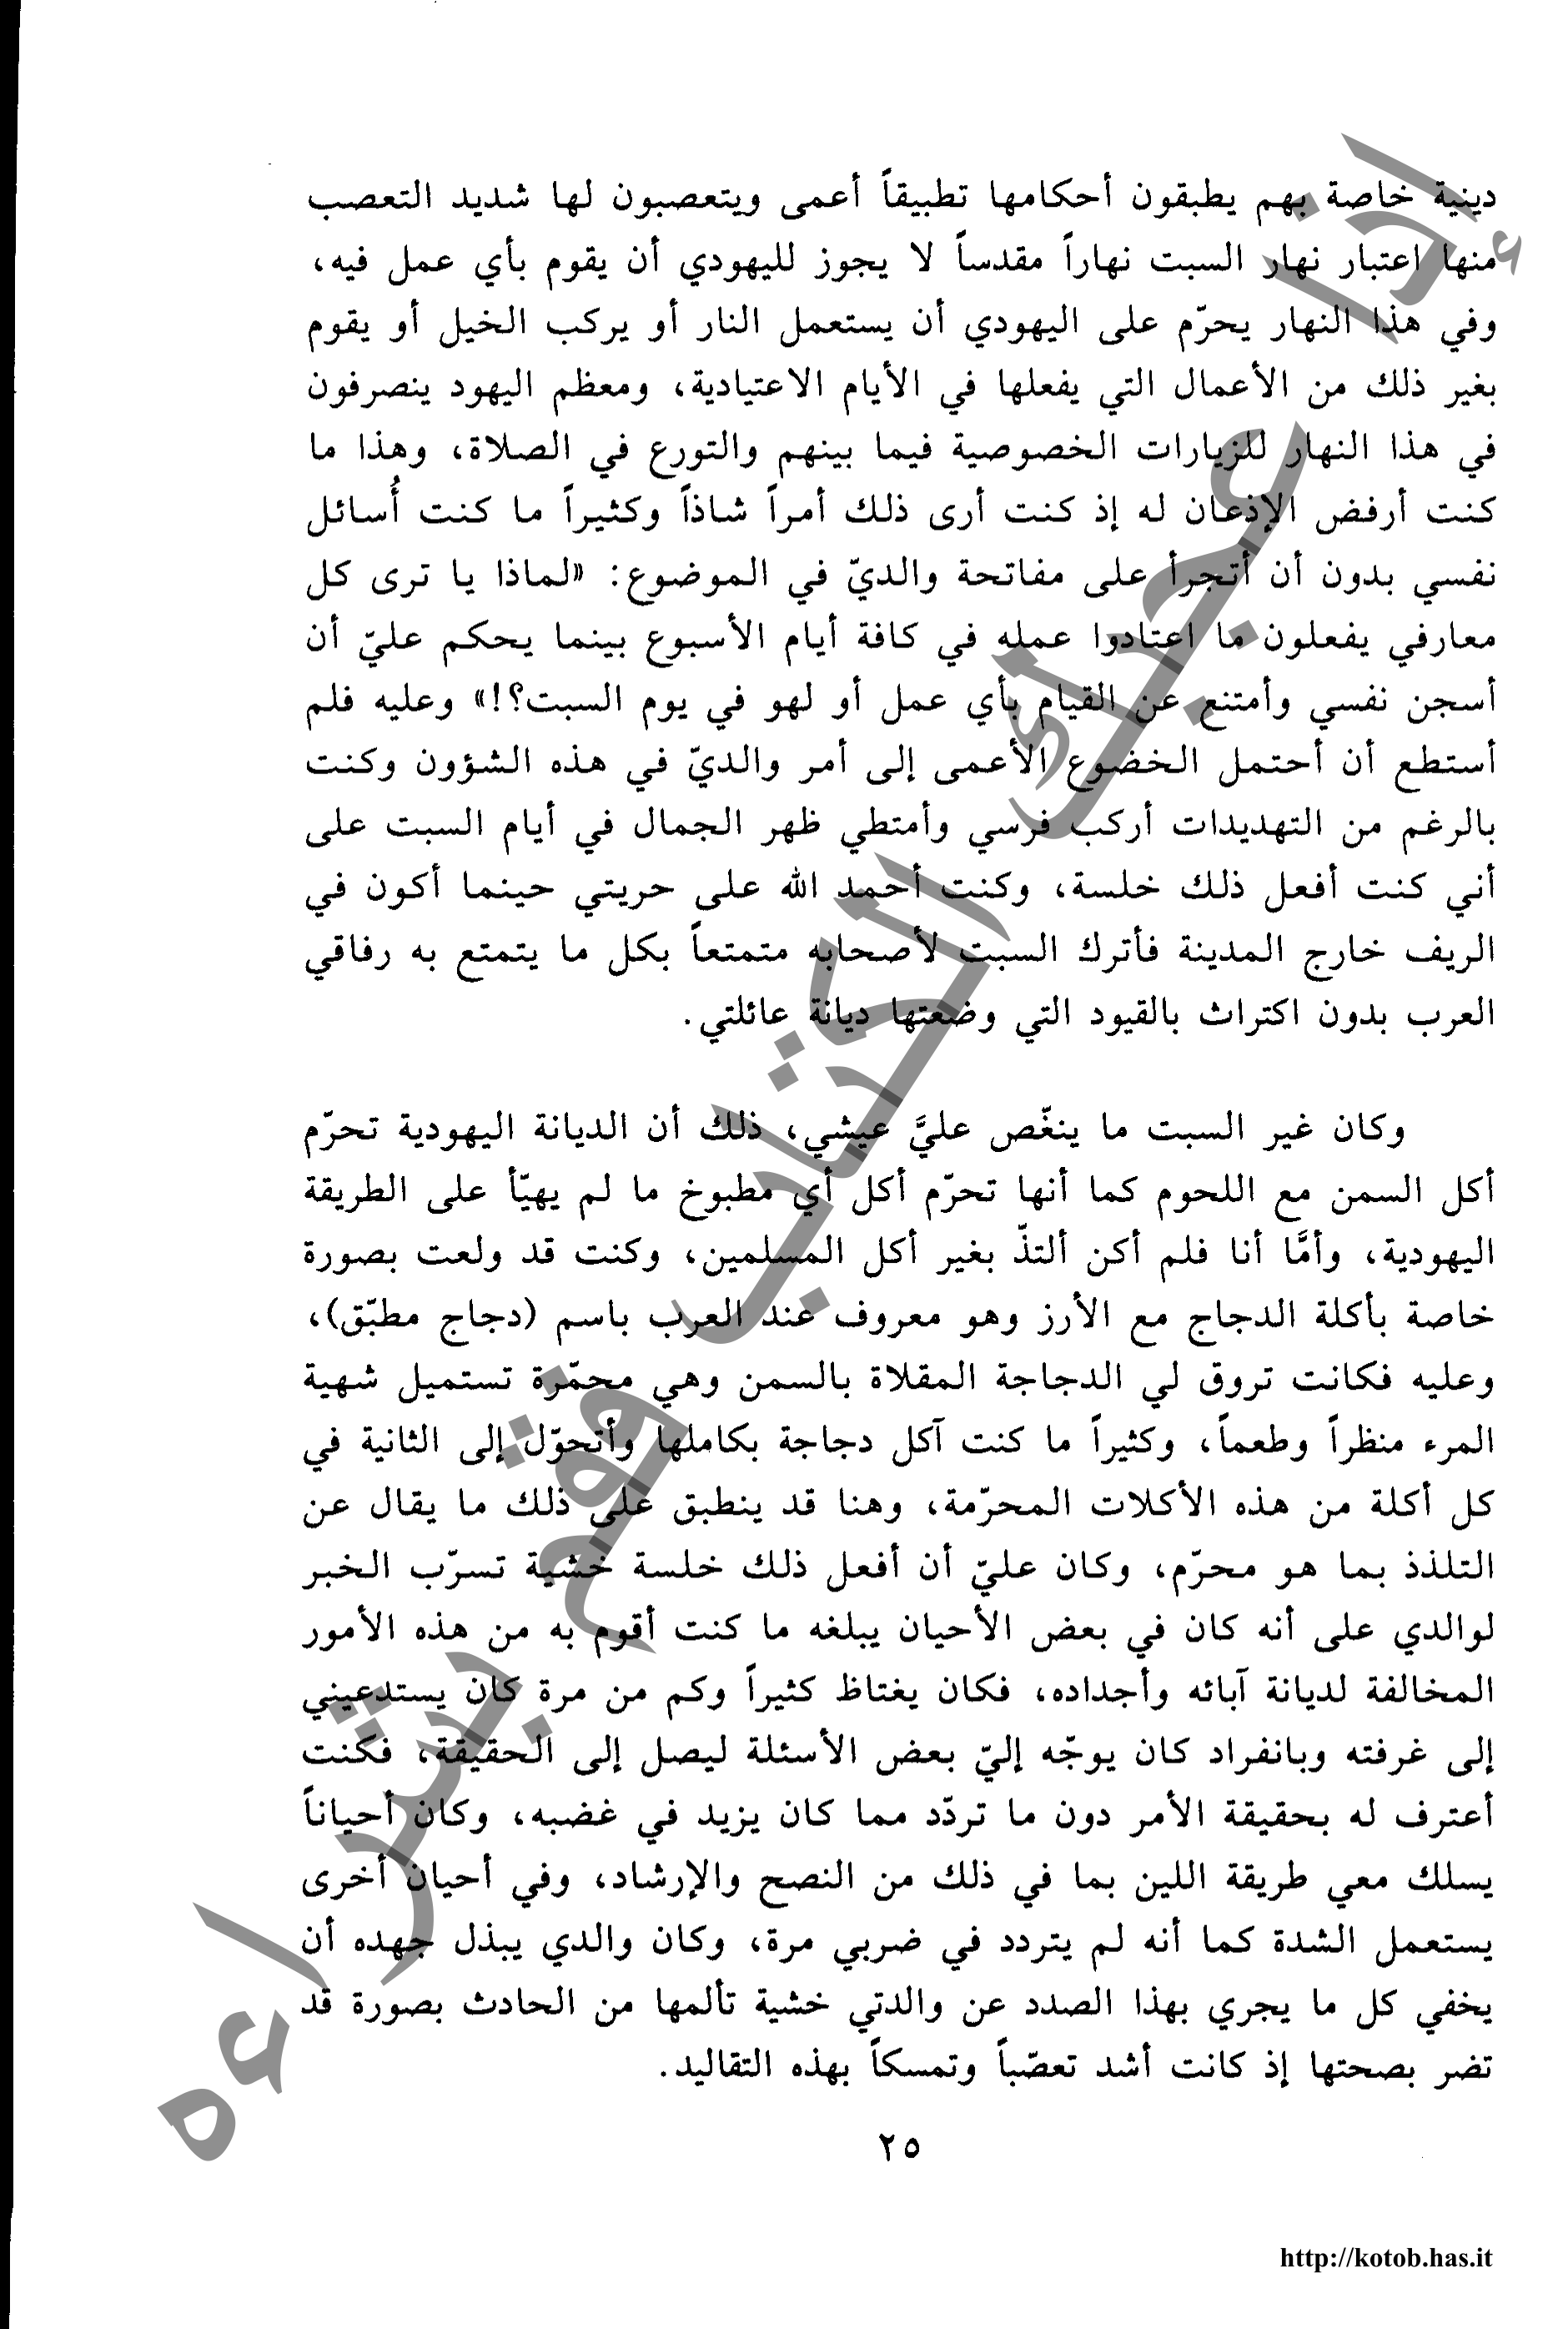 دينية خاصة بهم يطبقون أحكامها تطبيقاً أعمى ويتعصبون لها شديد التعصب
منها اعتبار نهار السبت نهاراً مقدساً لا يجوز لليهودي أن يقوم بأي عمل فيه،
وفي هذا النهار يحرّم على اليهودي أن يستعمل النار أو يركب الخيل أو يقوم
بغير ذلك من الأعمال التي يفعلها في الأيام الاعتيادية، ومعظم اليهود ينصرفون
في هذا النهار للزيارات الخصوصية فيما بينهم والتورع في الصلاة، وهذا ما
كنت أرفض الإذعان له إذ كنت أرى ذلك أمراً شاذاً وكثيراً ما كنت أُسائل
نفسي بدون أن أتجرأ على مفاتحة والديّ في الموضوع: «لماذا يا ترى كل
معارفي يفعلون ما اعتادوا عمله في كافة أيام الأسبوع بينما يحكم عليّ أن
أسجن نفسي وأمتنع عن القيام بأي عمل أو لهو في يوم السبت؟!» وعليه فلم
أستطع أن أحتمل الخضوع الأعمى إلى أمر والديّ في هذه الشؤون وكنت
بالرغم من التهديدات أركب فرسي وأمتطي ظهر الجمال في أيام السبت على
أني كنت أفعل ذلك خلسة، وكنت أحمد الله على حريتي حينما أكون في
الريف خارج المدينة فأترك السبت لأصحابه متمتعاً بكل ما يتمتع به رفاقي
العرب بدون اكتراث بالقيود التي وضعتها ديانة عائلتي.
وكان غير السبت ما ينغّص عليَّ عيشي، ذلك أن الديانة اليهودية تحرّم
أكل السمن مع اللحوم كما أنها تحرّم أكل أي مطبوخ ما لم يهيّأ على الطريقة
اليهودية، وأمَّا أنا فلم أكن ألتذّ بغير أكل المسلمين، وكنت قد ولعت بصورة
خاصة بأكلة الدجاج مع الأرز وهو معروف عند العرب باسم (دجاج مطبّق)،
وعليه فكانت تروق لي الدجاجة المقلاة بالسمن وهي محمّرة تستميل شهية
المرء منظراً وطعماً، وكثيراً ما كنت آكل دجاجة بكاملها وأتحوّل إلى الثانية في
كل أكلة من هذه الأكلات المحرّمة، وهنا قد ينطبق على ذلك ما يقال عن
التلذذ بما هو محرّم، وكان عليّ أن أفعل ذلك خلسة خشية تسرّب الخبر
لوالدي على أنه كان في بعض الأحيان يبلغه ما كنت أقوم به من هذه الأمور
المخالفة لديانة آبائه وأجداده، فكان يغتاظ كثيراً وكم من مرة كان يستدعيني
إلى غرفته وبانفراد كان يوجّه إليّ بعض الأسئلة ليصل إلى الحقيقة، فكنت
أعترف له بحقيقة الأمر دون ما تردّد مما كان يزيد في غضبه، وكان أحياناً
يسلك معي طريقة اللين بما في ذلك من النصح والإرشاد، وفي أحيان أخرى
يستعمل الشدة كما أنه لم يتردد في ضربي مرة، وكان والدي يبذل جهده أن
يخفي كل ما يجري بهذا الصدد عن والدتي خشية تألمها من الحادث بصورة قد
تضر بصحتها إذ كانت أشد تعصّباً وتمسكاً بهذه التقاليد.
٢٥
http://kotob.has.it
إذا أعجبك الكتاب قم بشراءه